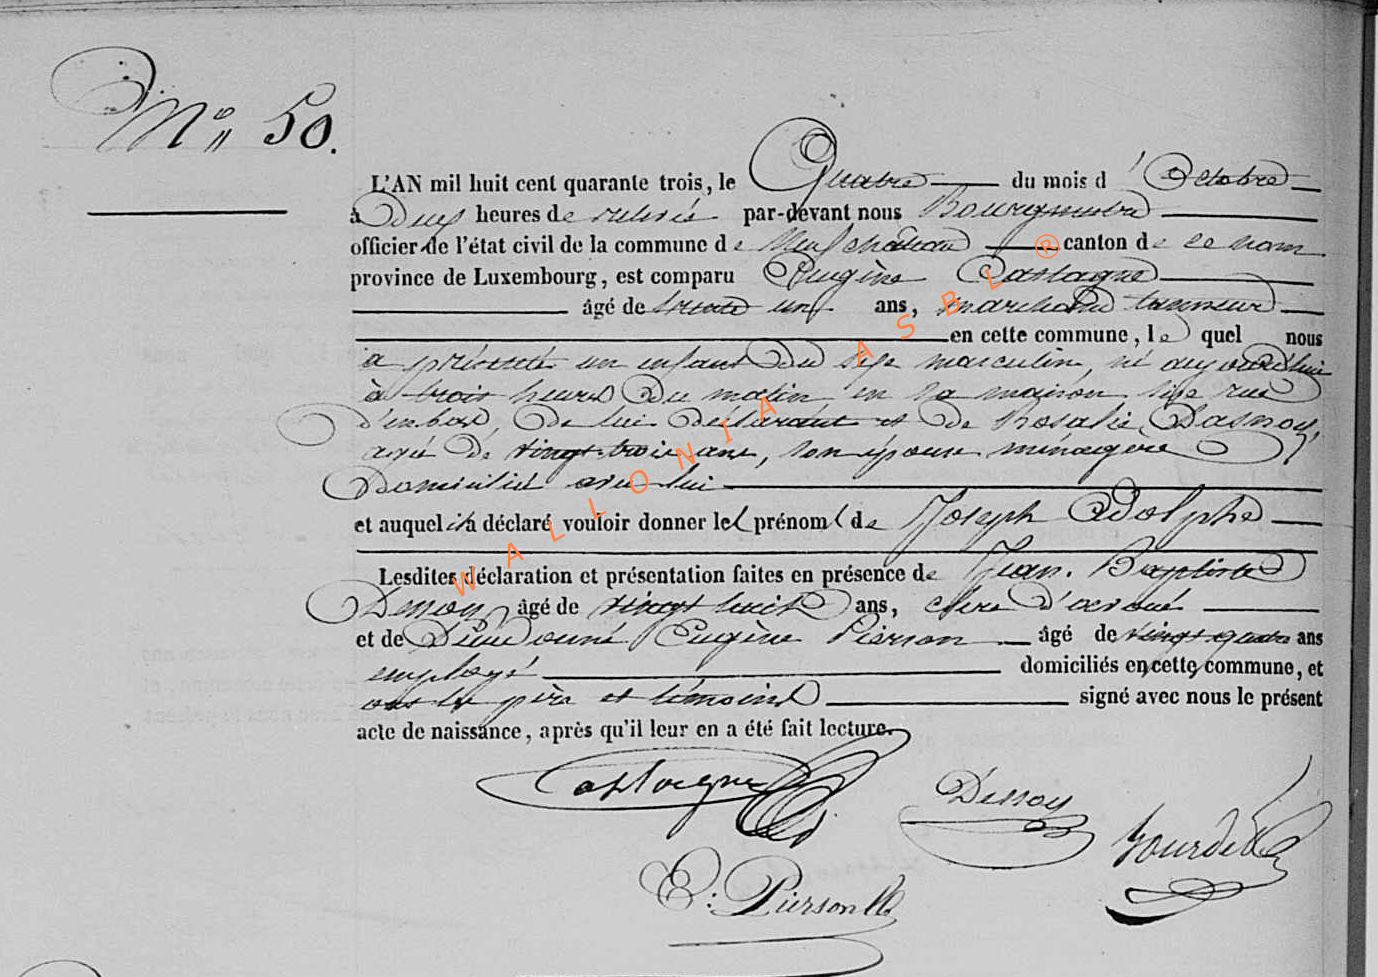 N° 50.
L'AN mil huit cent quarante trois, le Quatre du mois d'Octobre
à Deux heures de relevée par-devant nous Bourgmestre
officier de l'état civil de la commune de Neufchâteau canton de ce nom
province de Luxembourg, est comparu Eugène Castagne
âgé de trente un ans, marchand tanneur
en cette commune, lequel nous
a présenté un enfant Du sexe masculin, né aujourd'hui
à trois heures Du matin en sa maison sise rue
d'enbas, De lui Déclarant et De Rosalie Dasnoy,
agée De vingt trois ans, son épouse ménagère
Domiciliée avec lui
et auquel il a déclaré vouloir donner les prénoms de Joseph Adolphe
Lesdites déclaration et présentation faites en présence de Jean-Baptiste
Dessoy âgé de vingt huit ans, clerc d'avoué
et de Dieudonné Eugène Pierson âgé de vingt quatre ans
employé domiciliés en cette commune, et
ont les père et témoins signé avec nous le présent
acte de naissance, après qu'il leur en a été fait lecture.
Castagne
Dessoy
E. Pierson
WALLONIA ASBL ®